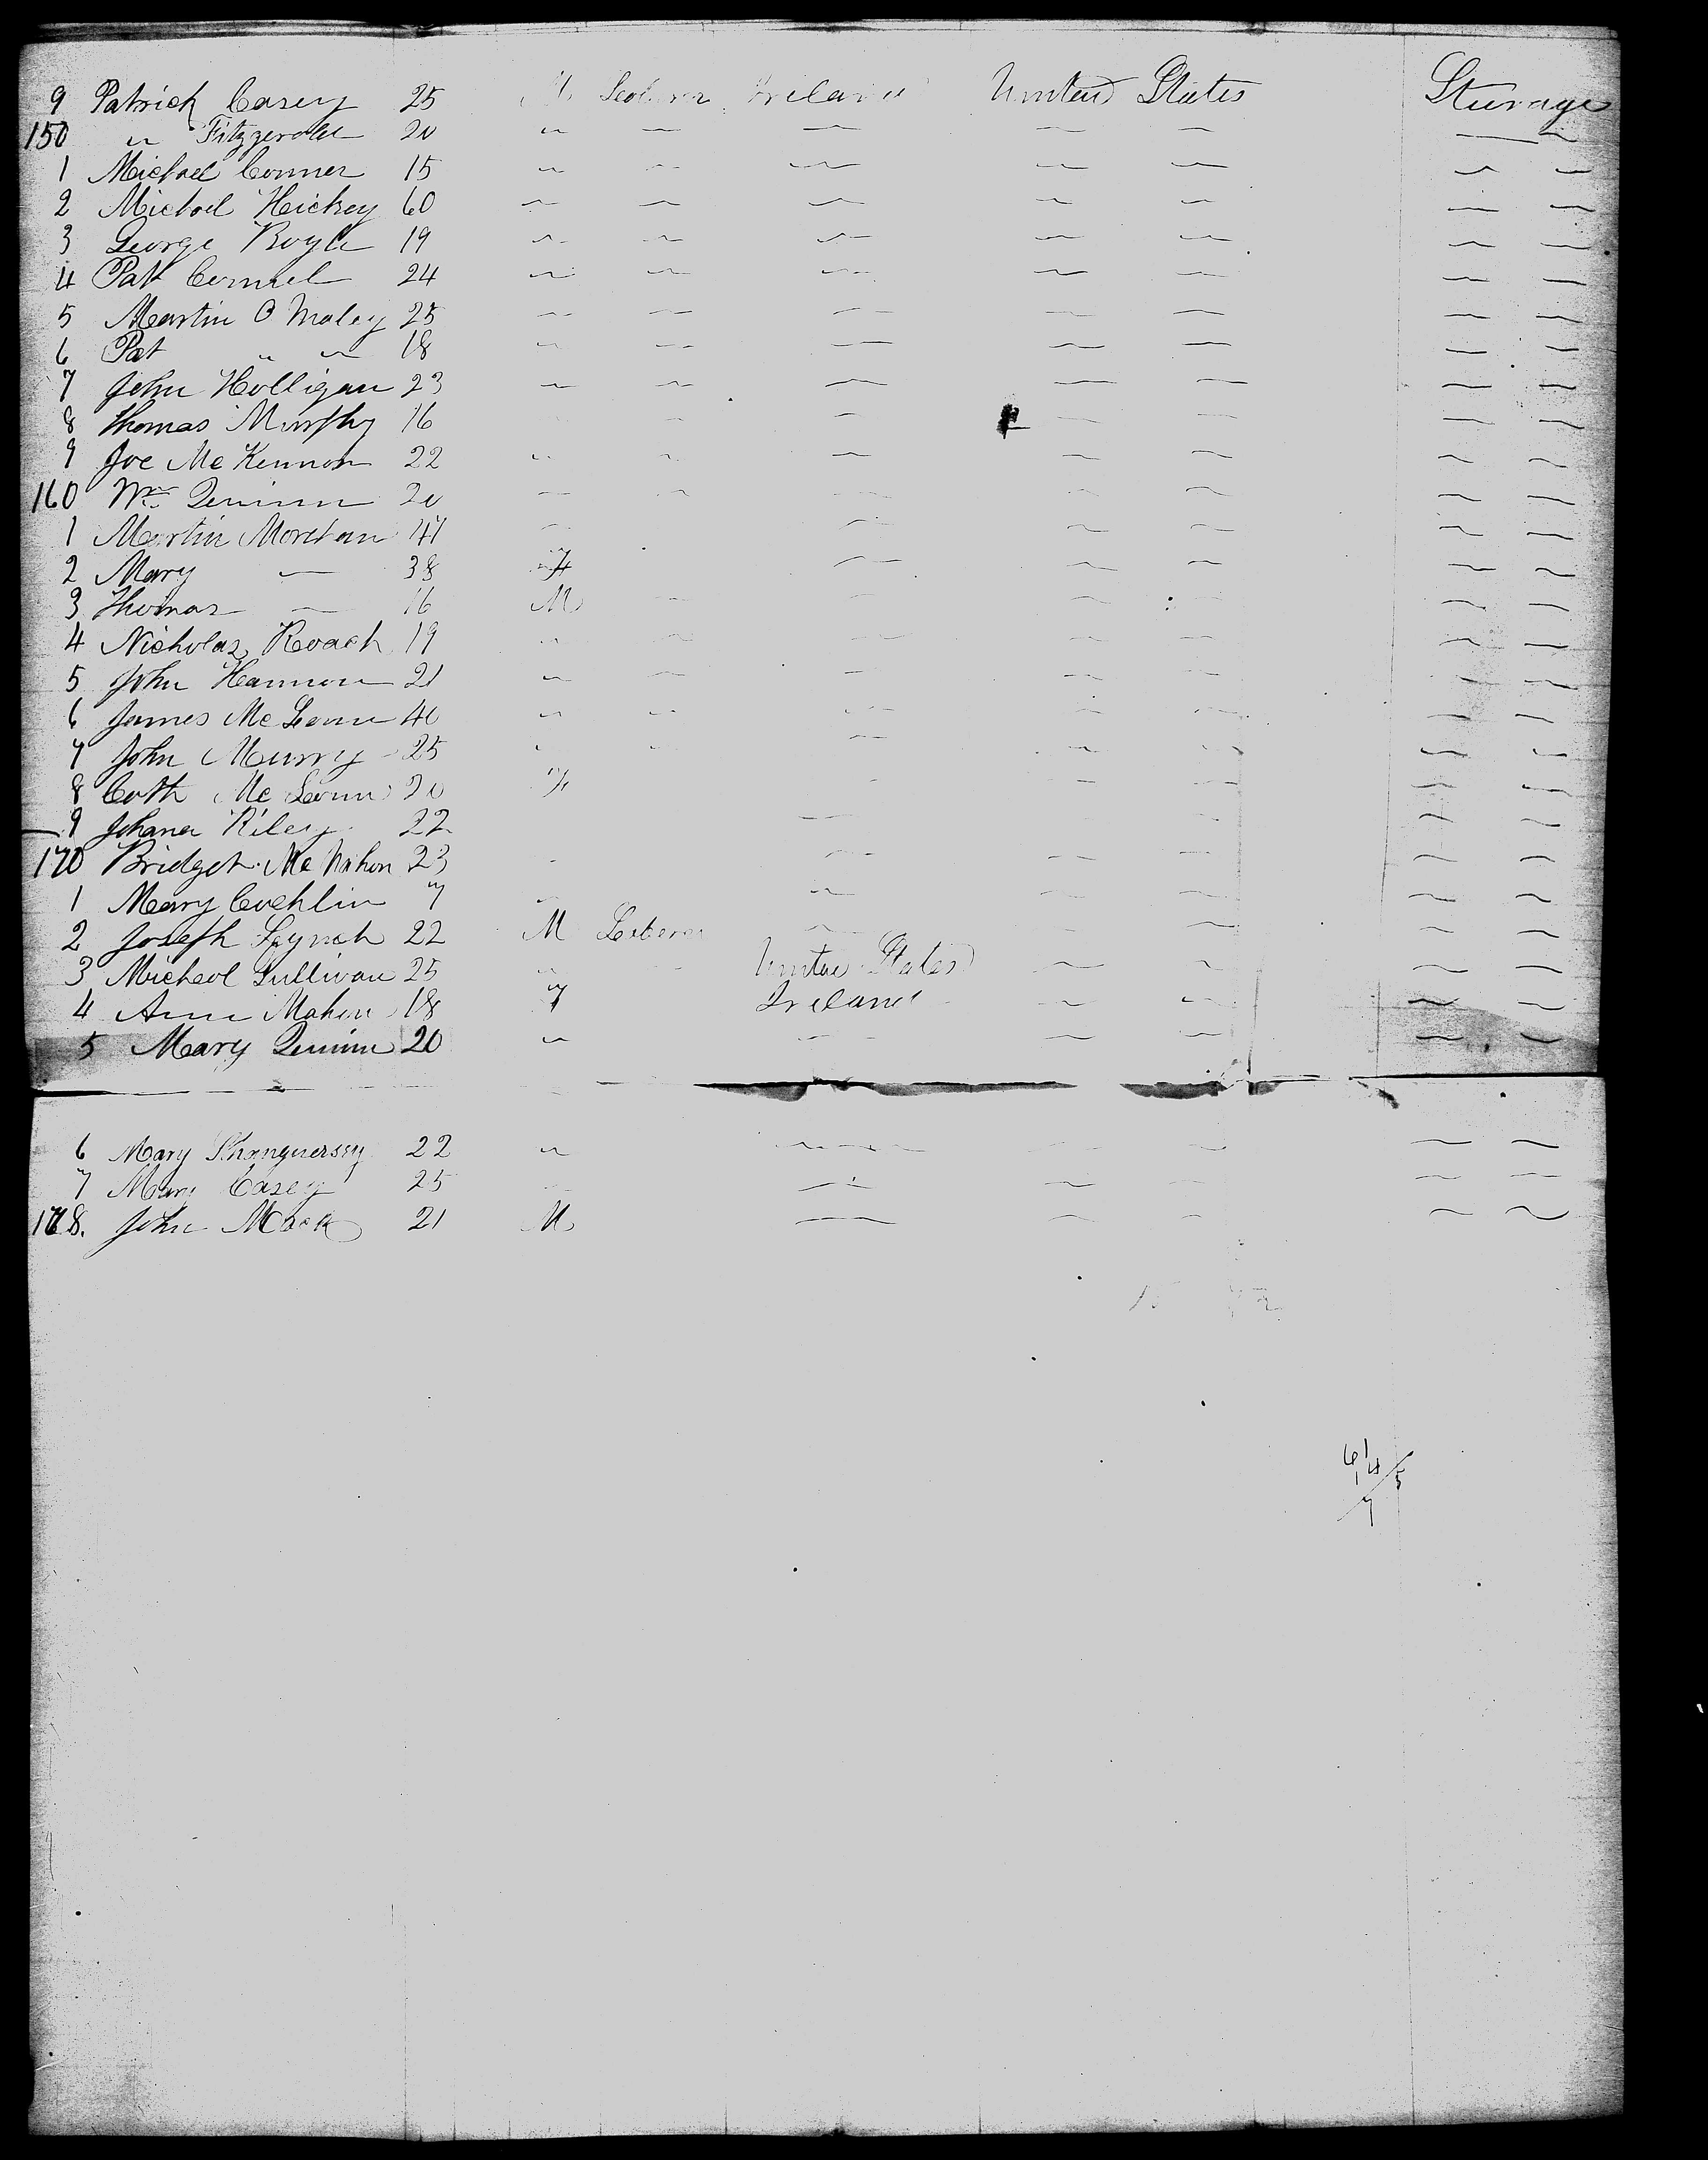 9 Patrick Casey 25 M Laborer Ireland United States Steerage
150 " Fitzgerald 20 " " " " " " "
1 Michael Conner 15 " " " " " " "
2 Michael Hickey 60 " " " " " " "
3 George Boyle 19 " " " " " " "
4 Patk Connel 24 " " " " " " "
5 Martin O Maley 25 " " " " " " "
6 Pat " " 18 " " " " " " "
7 John Holligan 23 " " " " " " "
8 Thomas Murphy 16 " " " " " "
9 Joe McKennon 22 " " " " " " "
160 Wm Quinn 20 " " " " " " "
1 Martin 47 " " " " " "
2 Mary " 38 F " " " " "
3 Thomas " 16 M " " " " "
4 Nicholas Roach 19 " " " " " " "
5 John Hannon 21 " " " " " " "
6 James Mc 40 " " " " " " "
7 John Murry 25 " " " " " " "
8 Cath Mc 20 F " " " " "
9 Johana Riley 22 " " " " "
170 Bridget McMahon 23 " " " " " "
1 Mary Coghlin 7 " " " " " "
2 Joseph Lynch 22 M Laborer " " " "
3 Micheal Sullivan 25 " " United States " " " "
4 Ann Mahon 18 F Ireland " " " "
5 Mary Quinn 20 " " " " " "
6 Mary 22 " " " " " "
7 Mary Casey 25 " " " " " "
178. John Mack 21 M " " " " "